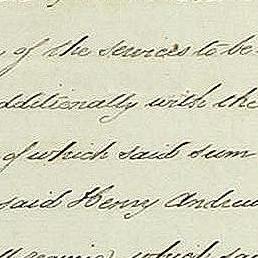 of the services to be
additionally with the
of which said sum
said Henry Andrew
which